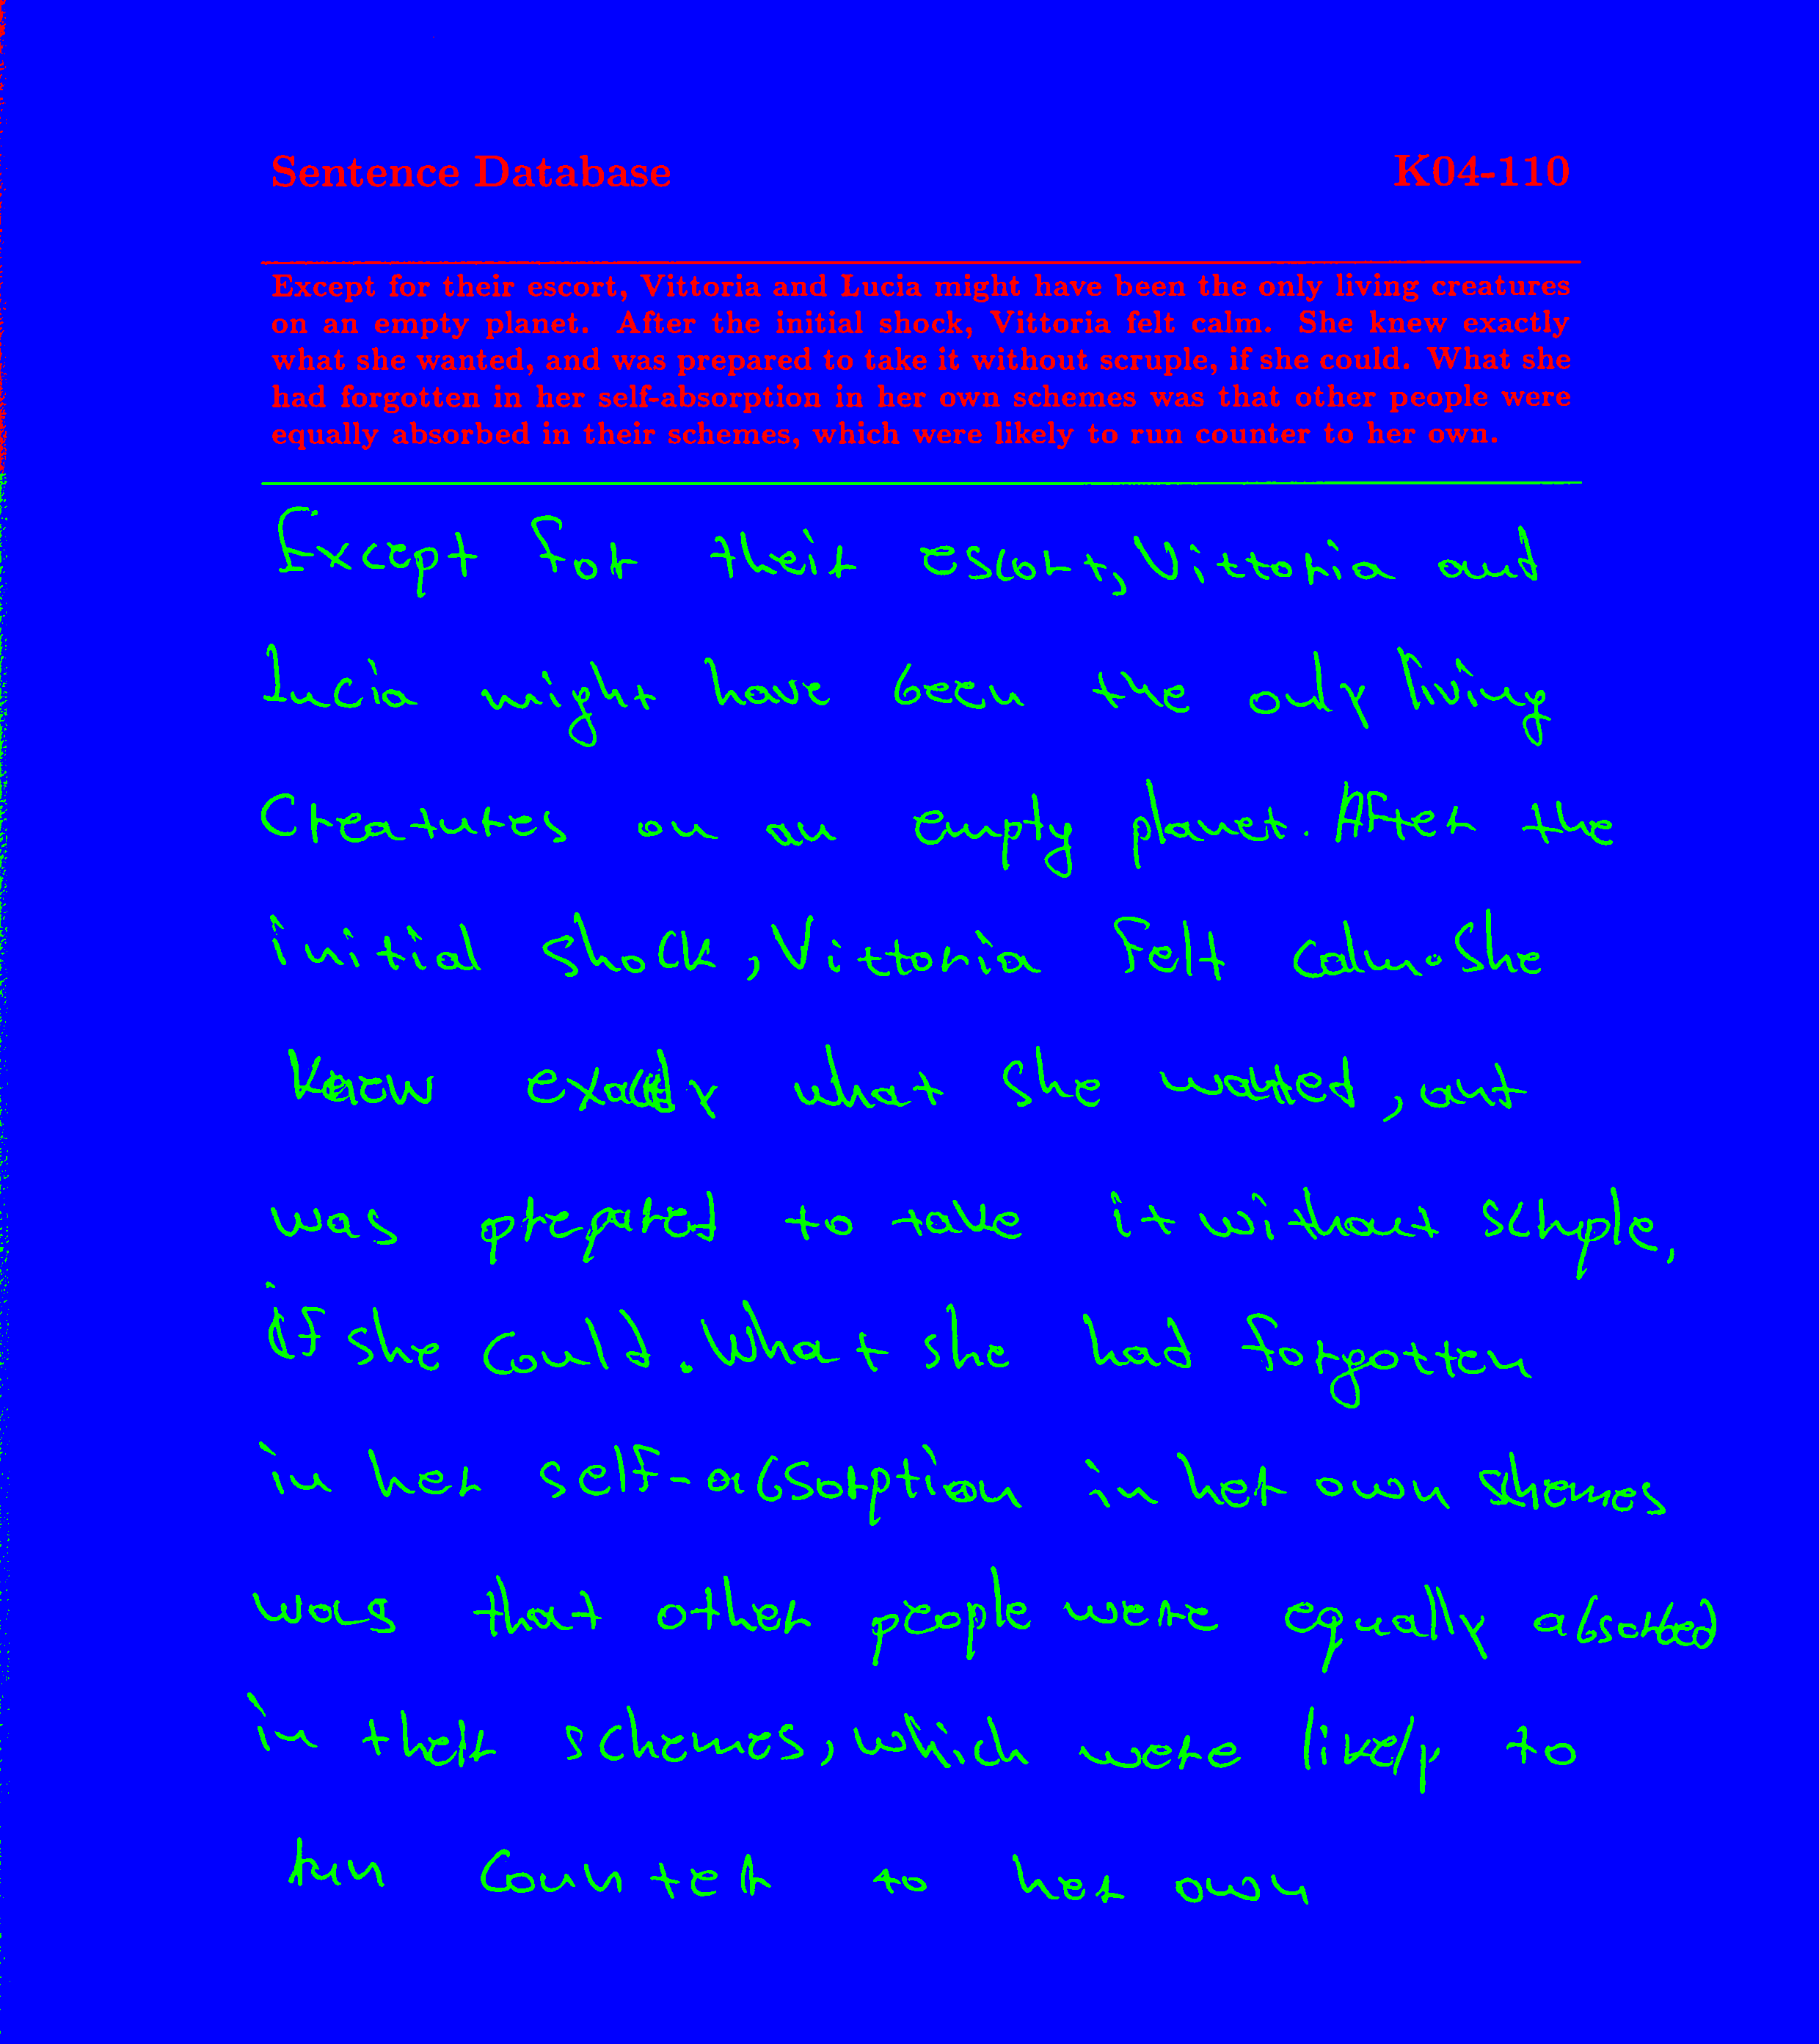 Sentence Database K04-110
Except for their escort, Vittoria and Lucia might have been the only living creatures
on an empty planet. After the initial shock, Vittoria felt calm. She knew exactly
what she wanted, and was prepared to take it without scruple, if she could. What she
had forgotten in her self-absorption in her own schemes was that other people were
equally absorbed in their schemes, which were likely to run counter to her own.
Except for their escort, Vittoria and
Lucia might have been the only living
Creatures on an empty planet. After the
initial shock, Vittoria felt calm. She
knew exactly what she wanted, and
was prepared to take it without scruple,
if she could. What she had forgotten
in her self-absorption in her own schemes
was that other people were equally absorbed
in their schemes, which were likely to
run counter to her own